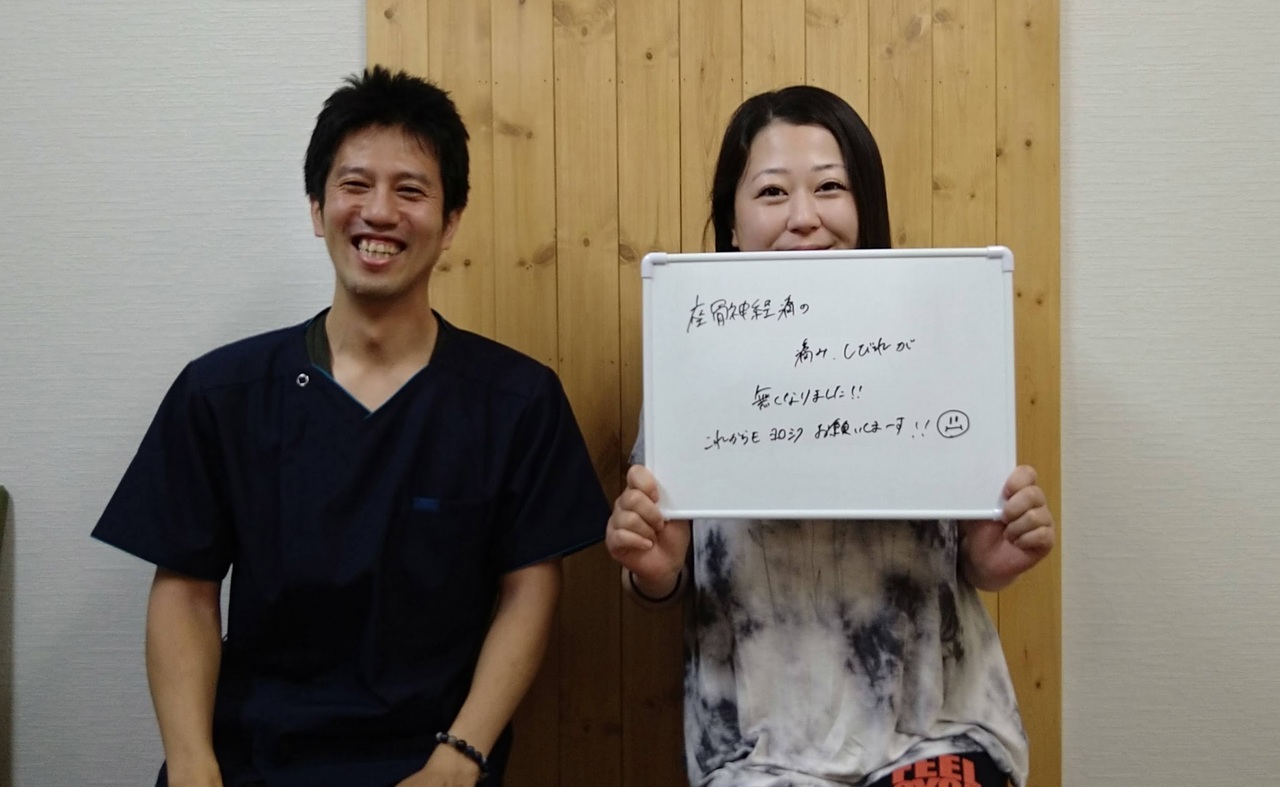 座骨神経痛の
痛み、しびれが
無くなりました!!
これからモ ヨロシク お願いしまーす!!
FEEL